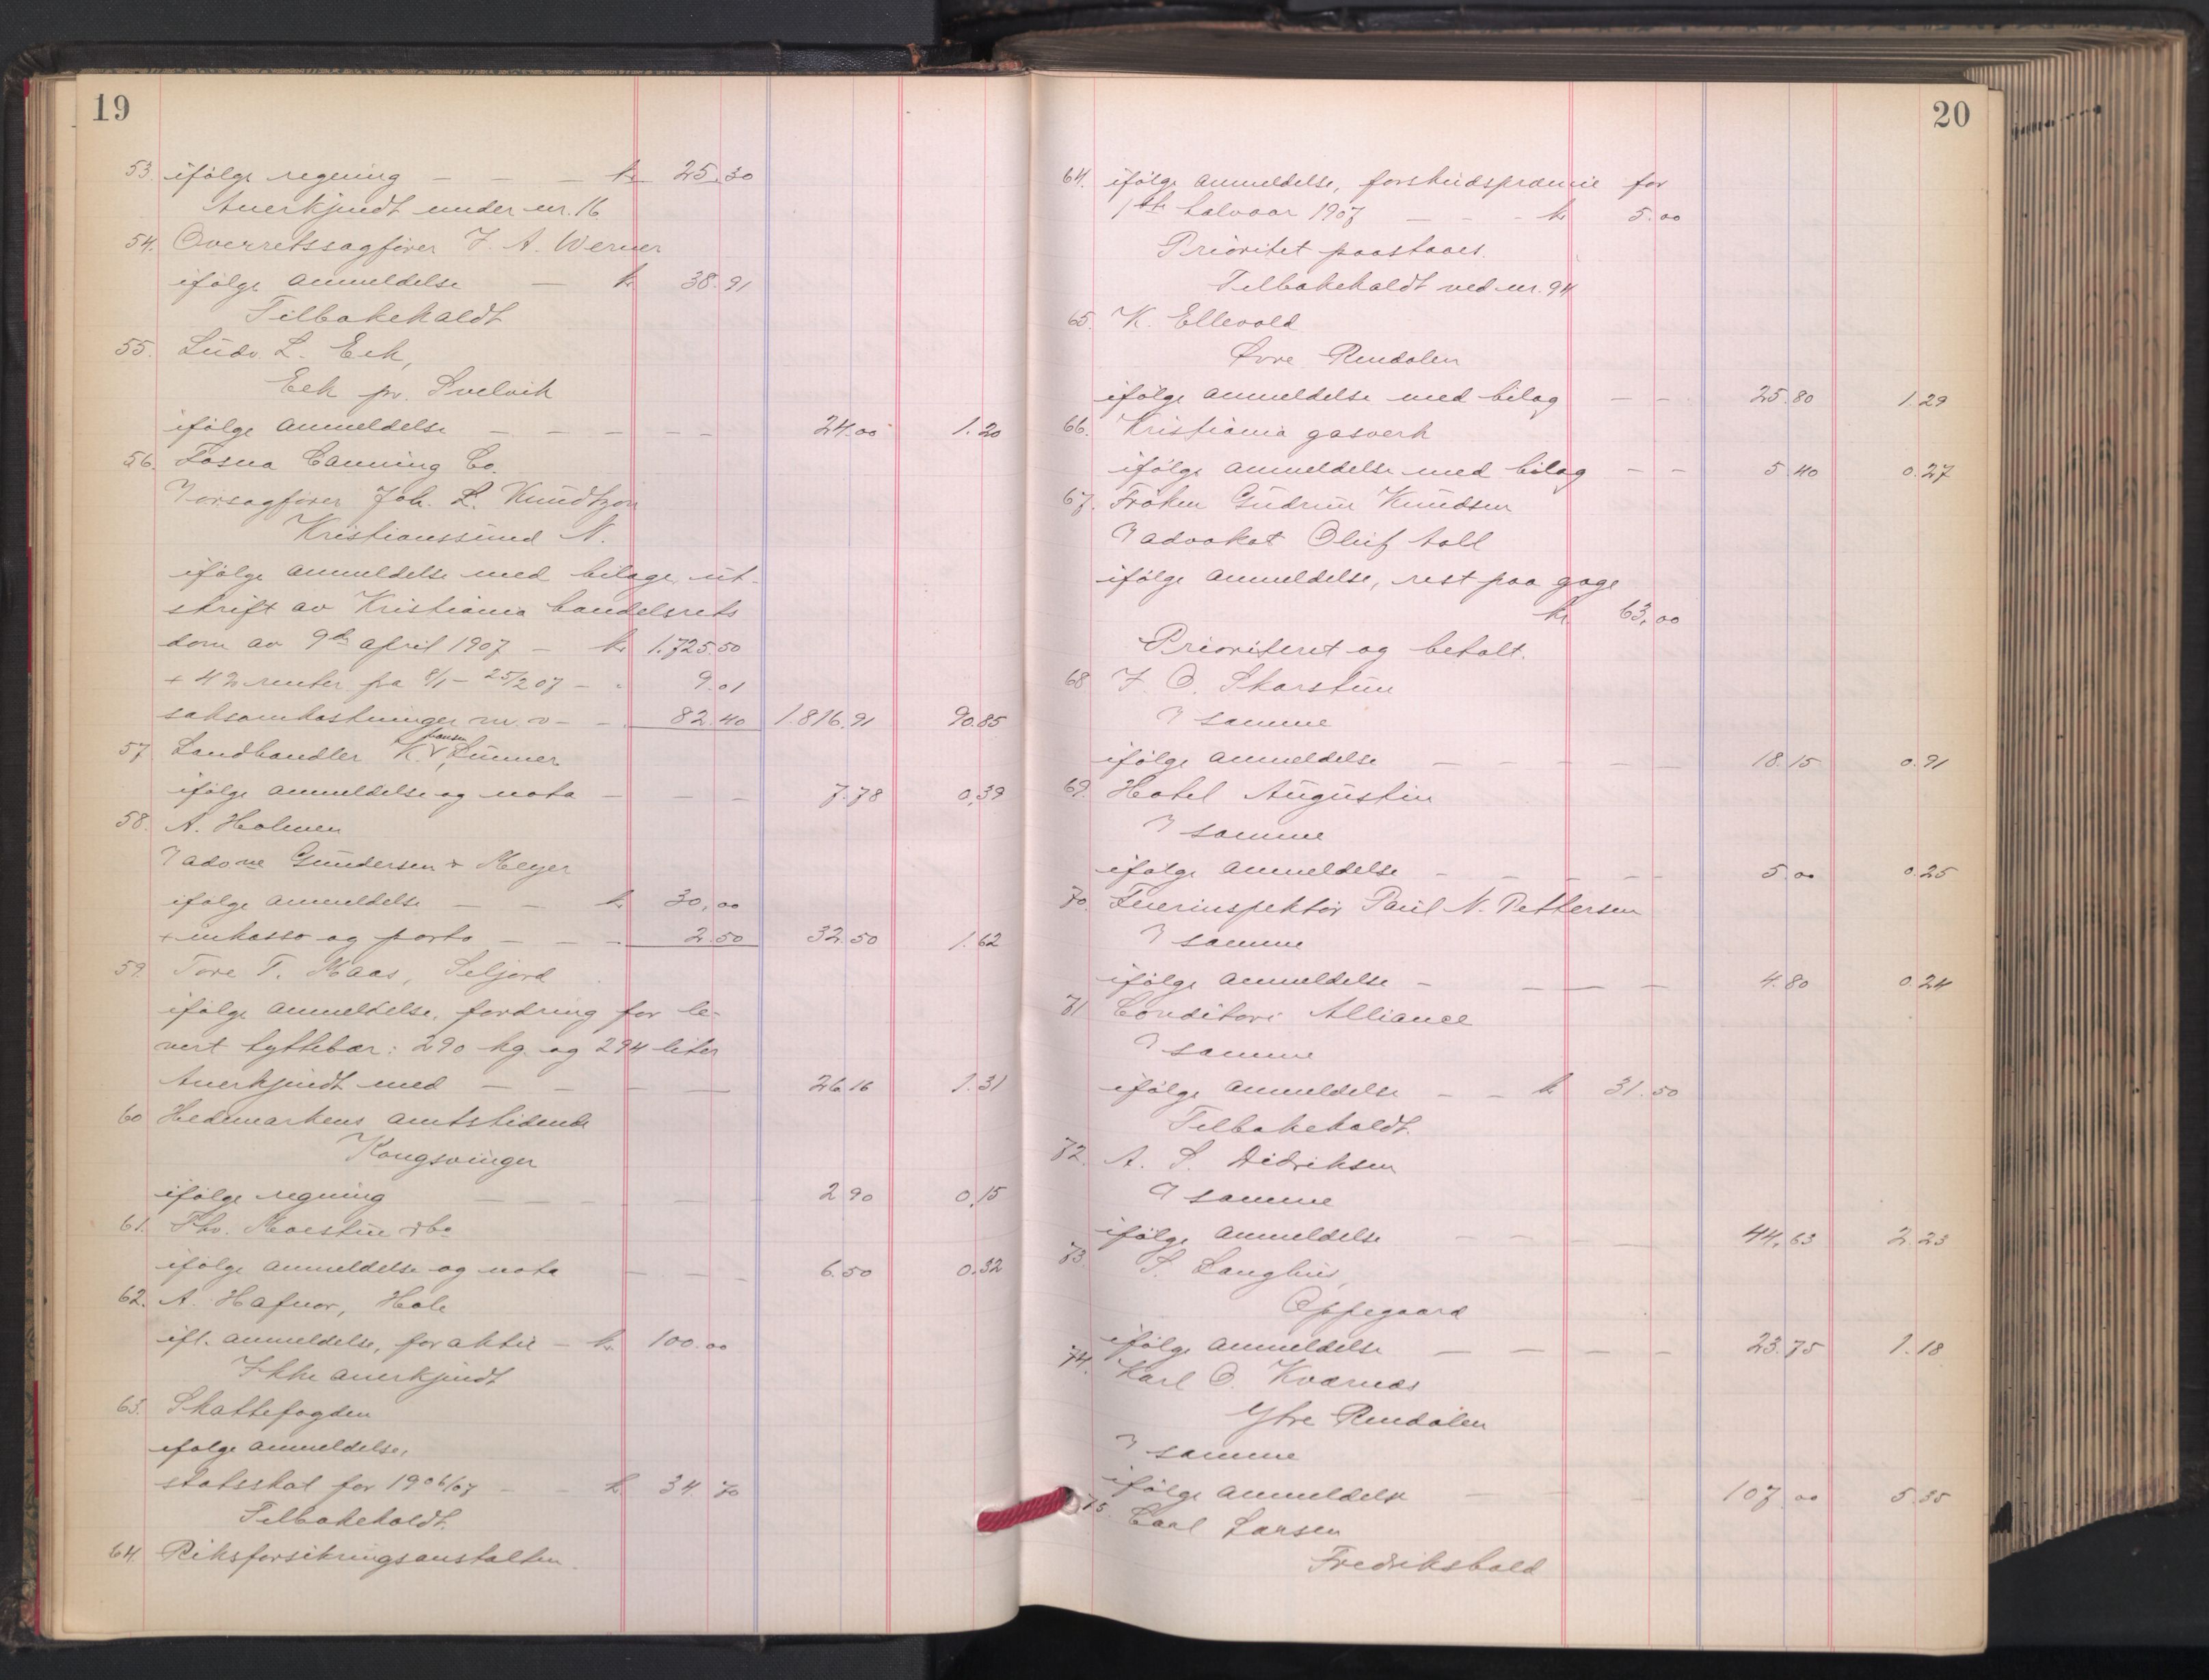 19
53. ifölge regning — — — kr 25.30
Anerkjendt under nr. 16
54. Overretssagfører J. A. Werner
ifölge anmeldelse — kr 38.91
Tilbakekaldt
55. Ludv. L. Eek,
Eek pr. Svelvik
ifölge anmeldelse — — — — — 24.00 1.20
56. Fosna Canning Co.
Joh. L. Knudtzon
Kristianssund N.
ifölge anmeldelse med bilage, ut-
skrift av Kristiania handelsrets
dom av 9de april 1907 — kr 1.725.50
+ 4% renter fra 8/1 – 25/2 07 – " 9.01
saksomkostninger m. v – – 82.40 1.816.91 90.85
57. Landhandler K. Hansen Lunner
ifölge anmeldelse og nota — — — 7.78 0,39
58. A. Holmen
Gundersen & Meyer
ifölge anmeldelse — — kr 30,00
+ inkasso og porto — — — 2.50 32.50 1.62
59. Tore T. Maas, Seljord
ifölge anmeldelse, fordring for le-
vert tyttebær: 290 kg. og 294 liter
Anerkjendt med — — — — 26.16 1.31
60 Hedemarkens amtstidende
Kongsvinger
ifölge regning — — — — — 2.90 0,15
61. Thv. Moestue & Co
ifölge anmeldelse og nota — — — 6.50 0.32
62. A. Hafnor, Hole
ifl. anmeldelse, for aktie — kr. 100.00
Ikke anerkjendt
63. Skattefogden
ifölge anmeldelse,
statsskat for 1906/07 — — kr 34.70
Tilbakekaldt.
64 Riksforsikringsanstalten.
20
64. ifölge anmeldelse, forskudspræmie for
1ste halvaar 1907 — — — kr 5.00
Prioritet paastaaes.
Tilbakekaldt ved nr. 94
65. K. Ellevold
Øvre Rendalen
ifölge anmeldelse med bilag — — 25.80 1.29
66. Kristiania gasverk
ifölge anmeldelse med bilag — — 5.40 0.27
67. Frøken Gudrun Knudsen
advokat Oluf Aall
ifölge anmeldelse, rest paa gage
kr. 63,00
Prioriteret og betalt.
68 J. O. Skarstein
samme
ifölge anmeldelse — — — — — 18.15 0.91
69. Hotel Augustin
samme
ifölge anmeldelse — — — — — 5.00 0.25
70. Feierinspektør Paul N. Pettersen
samme
ifölge anmeldelse — — — — 4.80 0.24
71 Conditori Alliance
samme
ifölge anmeldelse — — kr 31.50
Tilbakekaldt.
72. A. S. Didriksen
samme
ifölge anmeldelse — — — — 44,63 2.23
73. S. Langhus,
Oppegaard
ifölge anmeldelse — — — — — 23.75 1.18
74. Karl O. Kværnæs
Ytre Rendalen
samme
ifölge anmeldelse — — — 107.00 5.35
75. Carl Larsen
Fredrikshald